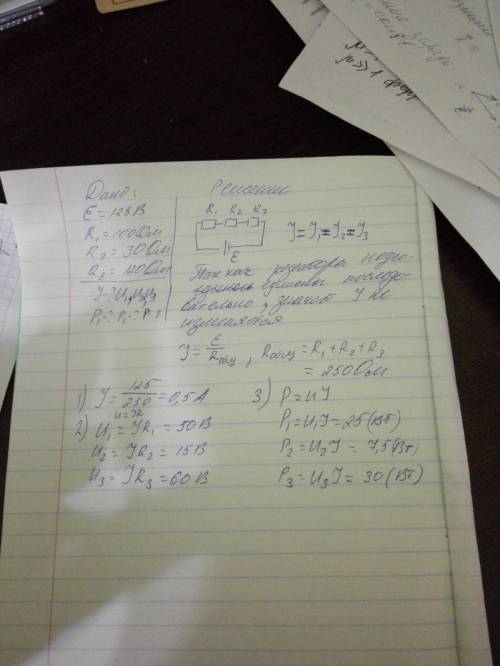 Дано:
ε = 125 В
R₁ = 100 Ом
R₂ = 30 Ом
R₃ = 120 Ом
P₁-? P₂-? P₃-?
Решение
R₁ R₂ R₃
ε
I = I₁ = I₂ = I₃
Так как резисторы
последо-
вательно, значит I не
изменяется
I = ε/Rобщ , Rобщ = R₁ + R₂ + R₃
= 250 Ом
1) I = 125/250 = 0,5 А
U = IR
2) U₁ = IR₁ = 50 В
U₂ = IR₂ = 15 В
U₃ = IR₃ = 60 В
3) P = UI
P₁ = U₁I = 25 (Вт)
P₂ = U₂I = 7,5 (Вт)
P₃ = U₃I = 30 (Вт)